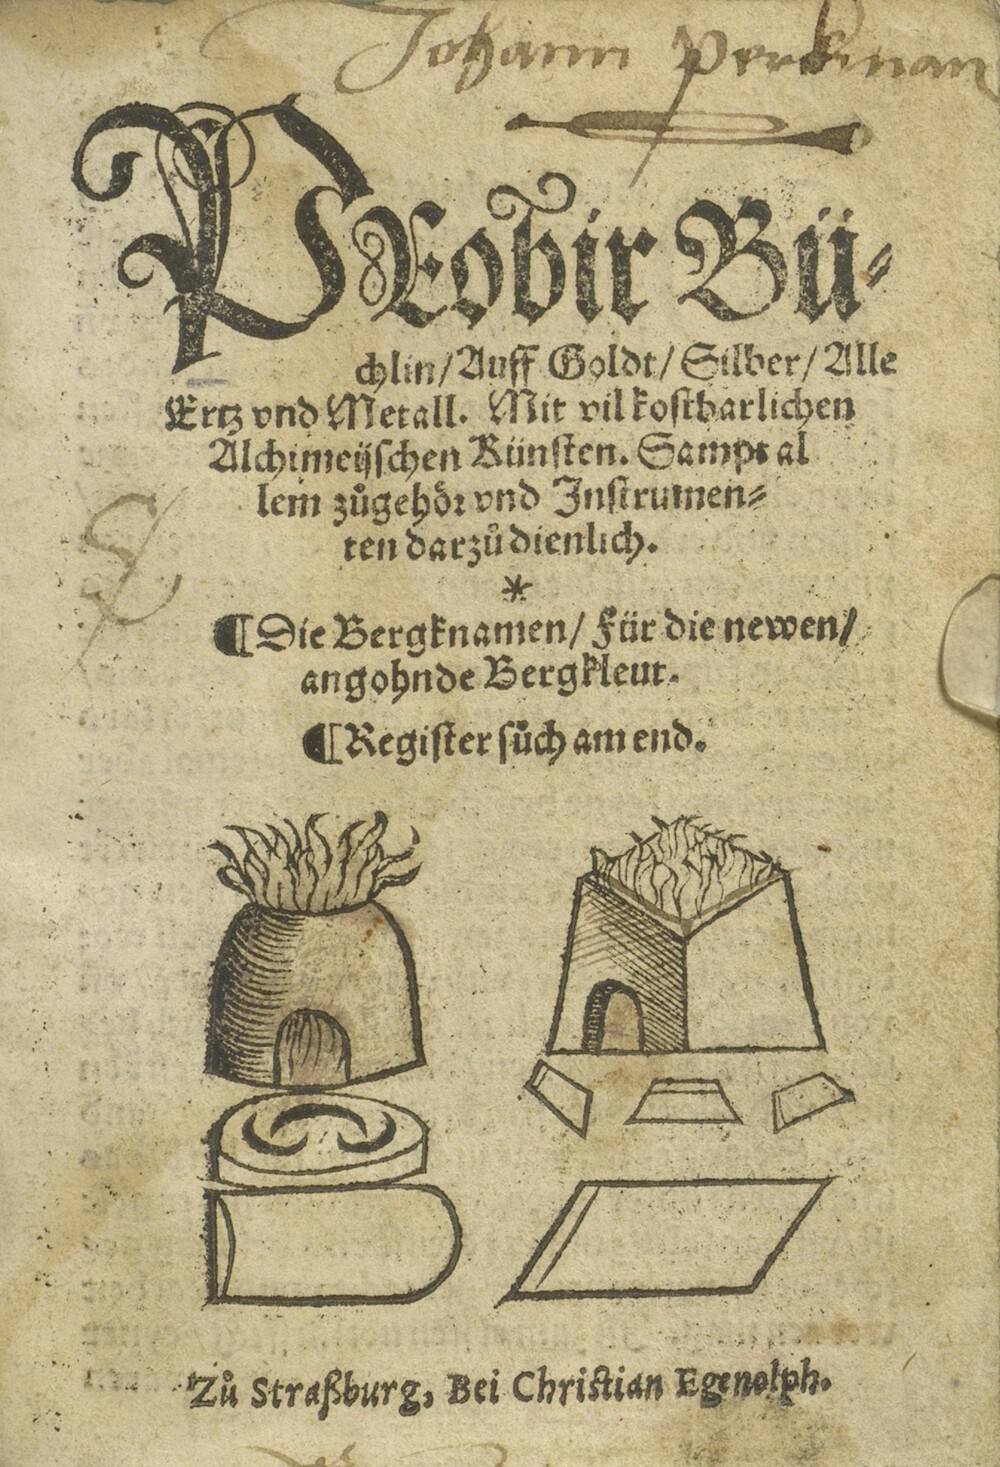 Johann Perckman
PRobir Bü⸗
chlin/ Auff Goldt/ Silber/ Alle
Ertz vnd Metall. Mit vil kostbarlichen
Alchimeijschen Künsten. Sampt al
lem zůgehör vnd Instrumen⸗
ten darzů dienlich.
*
¶ Die Bergknamen/ Für die newen/
angohnde Bergkleut.
¶ Register sůch am end.
Zů Straßburg, Bei Christian Egenolph.